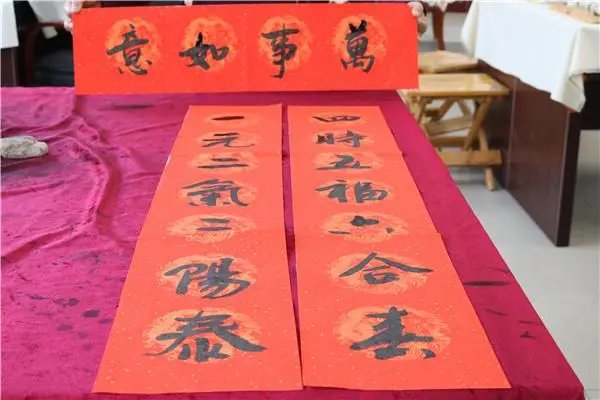 萬事如意
一元二氣三陽泰
四時五福六合春